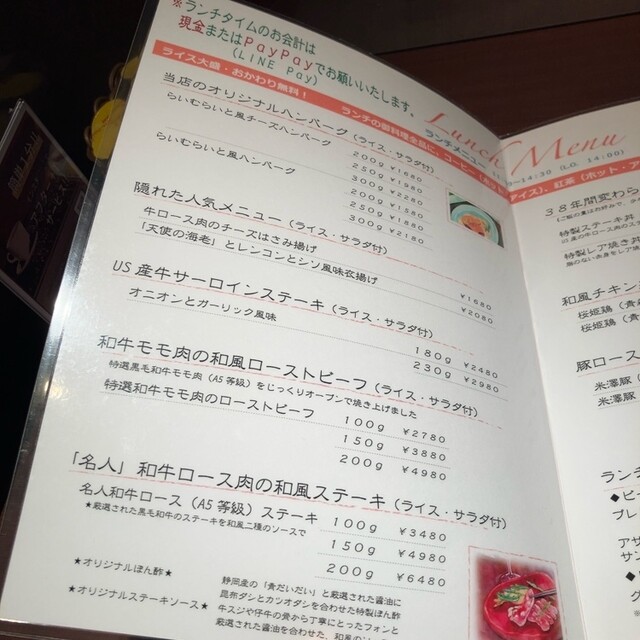 ※ランチタイムのお会計は
現金またはPayPayでお願いいたします。
(LINE Pay)
ライス大盛・おかわり無料!
ランチの御料理全品に、コーヒー
アイス)、紅茶(ホット・ア
Lunch Menu
ランチメニュー
14:30 (L.O. 14:00)
当店のオリジナルハンバーグ(ライス・サラダ付)
らいむらいと風チーズハンバーグ
200g ¥1680
250g ¥1980
300g ¥2280
らいむらいと風ハンバーグ
200g ¥1580
250g ¥1880
300g ¥2180
隠れた人気メニュー(ライス・サラダ付)
牛ロース肉のチーズはさみ揚げ ¥1680
「天使の海老」とレンコンとシソ風味衣揚げ ¥2080
US産牛サーロインステーキ(ライス・サラダ付)
オニオンとガーリック風味 180g ¥2480
230g ¥2980
和牛モモ肉の和風ローストビーフ(ライス・サラダ付)
特選黒毛和牛モモ肉(A5等級)をじっくりオーブンで焼き上げました
特選和牛モモ肉のローストビーフ 100g ¥2780
150g ¥3880
200g ¥4980
「名人」和牛ロース肉の和風ステーキ(ライス・サラダ付)
名人和牛ロース(A5等級)ステーキ 100g ¥3480
★厳選された黒毛和牛のステーキを和風二種のソースで
150g ¥4980
200g ¥6480
★オリジナルぽん酢★
静岡産の「青だいだい」と厳選された醤油に
昆布ダシとカツオダシを合わせた特製ぽん酢
★オリジナルステーキソース★
牛スジや仔牛の骨から丁寧にとったフォンと
厳選された醤油を合わせた、和風のソース
38年間変わら
特製ステーキ丼
特製レア焼き丼
和風チキン
桜姫鶏(青
桜姫鶏(青
豚ロース
米澤豚(
米澤豚(
ランチ
ブレ
アサ
サン
グ